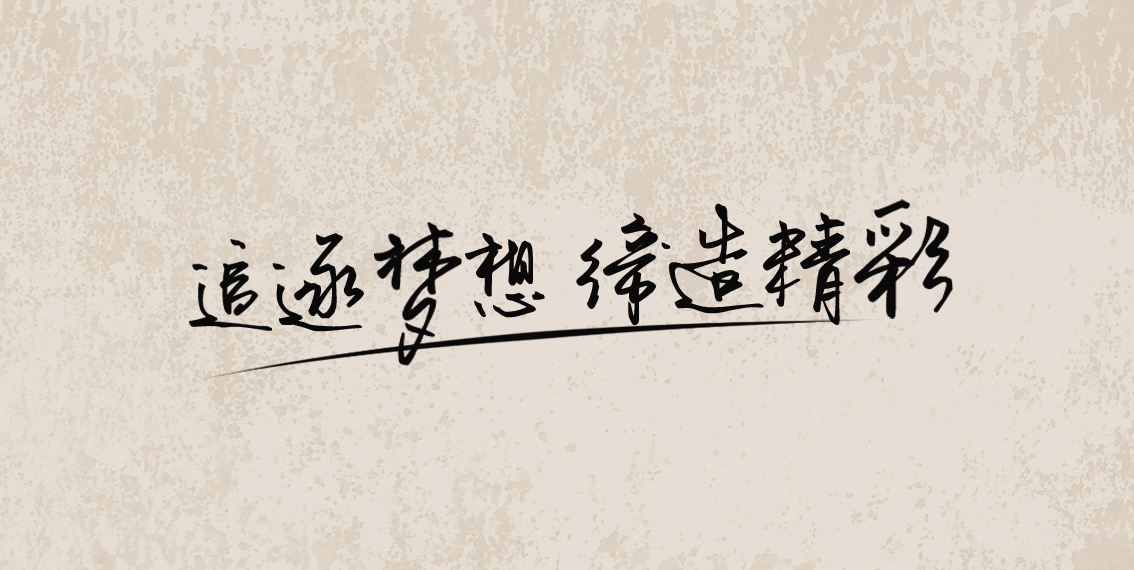 追逐梦想 缔造精彩